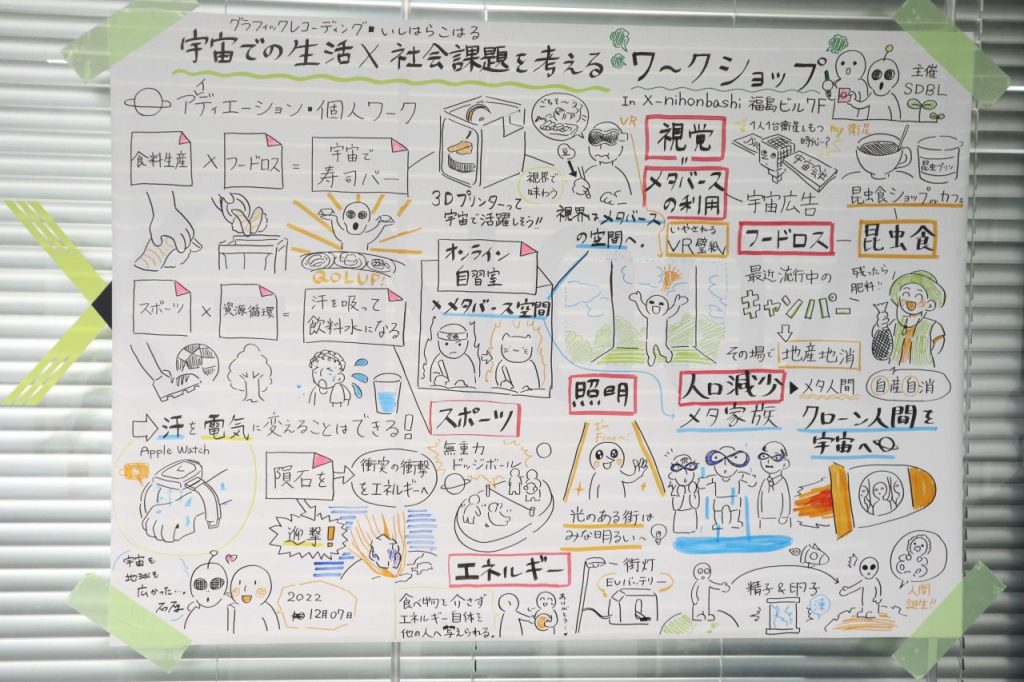 グラフィックレコーディング・いしはらこはる
宇宙での生活×社会課題を考える ワークショップ
In X-nihonbashi 福島ビル7F
主催
SDBL
アイディエーション・個人ワーク
食料生産 × フードロス = 宇宙で
寿司バー
QOL UP!
3Dプリンターって
宇宙で活躍しそう!!
視界で
味わう
豆
VR
視界はメタバース
の空間へ。
視覚
=
メタバース
の利用
1人1台衛星をもつ
時代へ?
my 衛星
宇宙広告
昆虫プリン
昆虫食ショップorカフェ
スポーツ × 資源循環 = 汗を吸って
飲料水になる
オンライン
自習室
×メタバース空間
いやされる
VR壁紙
フードロス 昆虫食
最近流行中の
キャンパー
残ったら
肥料!!
その場で 地産地消
自産自消
汗を電気に変えることはできる!
Apple Watch
隕石を
衝突の衝撃
をエネルギーへ
迎撃!
スポーツ
無重力
ドッジボール
照明
光のある街は
みな明るい〜
人口減少
メタ家族
メタ人間
クローン人間を
宇宙へ
宇宙も
地球も
広かった…。
2022
12月07日
エネルギー
食べ物を介さず
エネルギー自体を
他の人へ与えられる。
ありがとう〜
街灯
EVバッテリー
精子&卵子
凍
人間
誕生!!